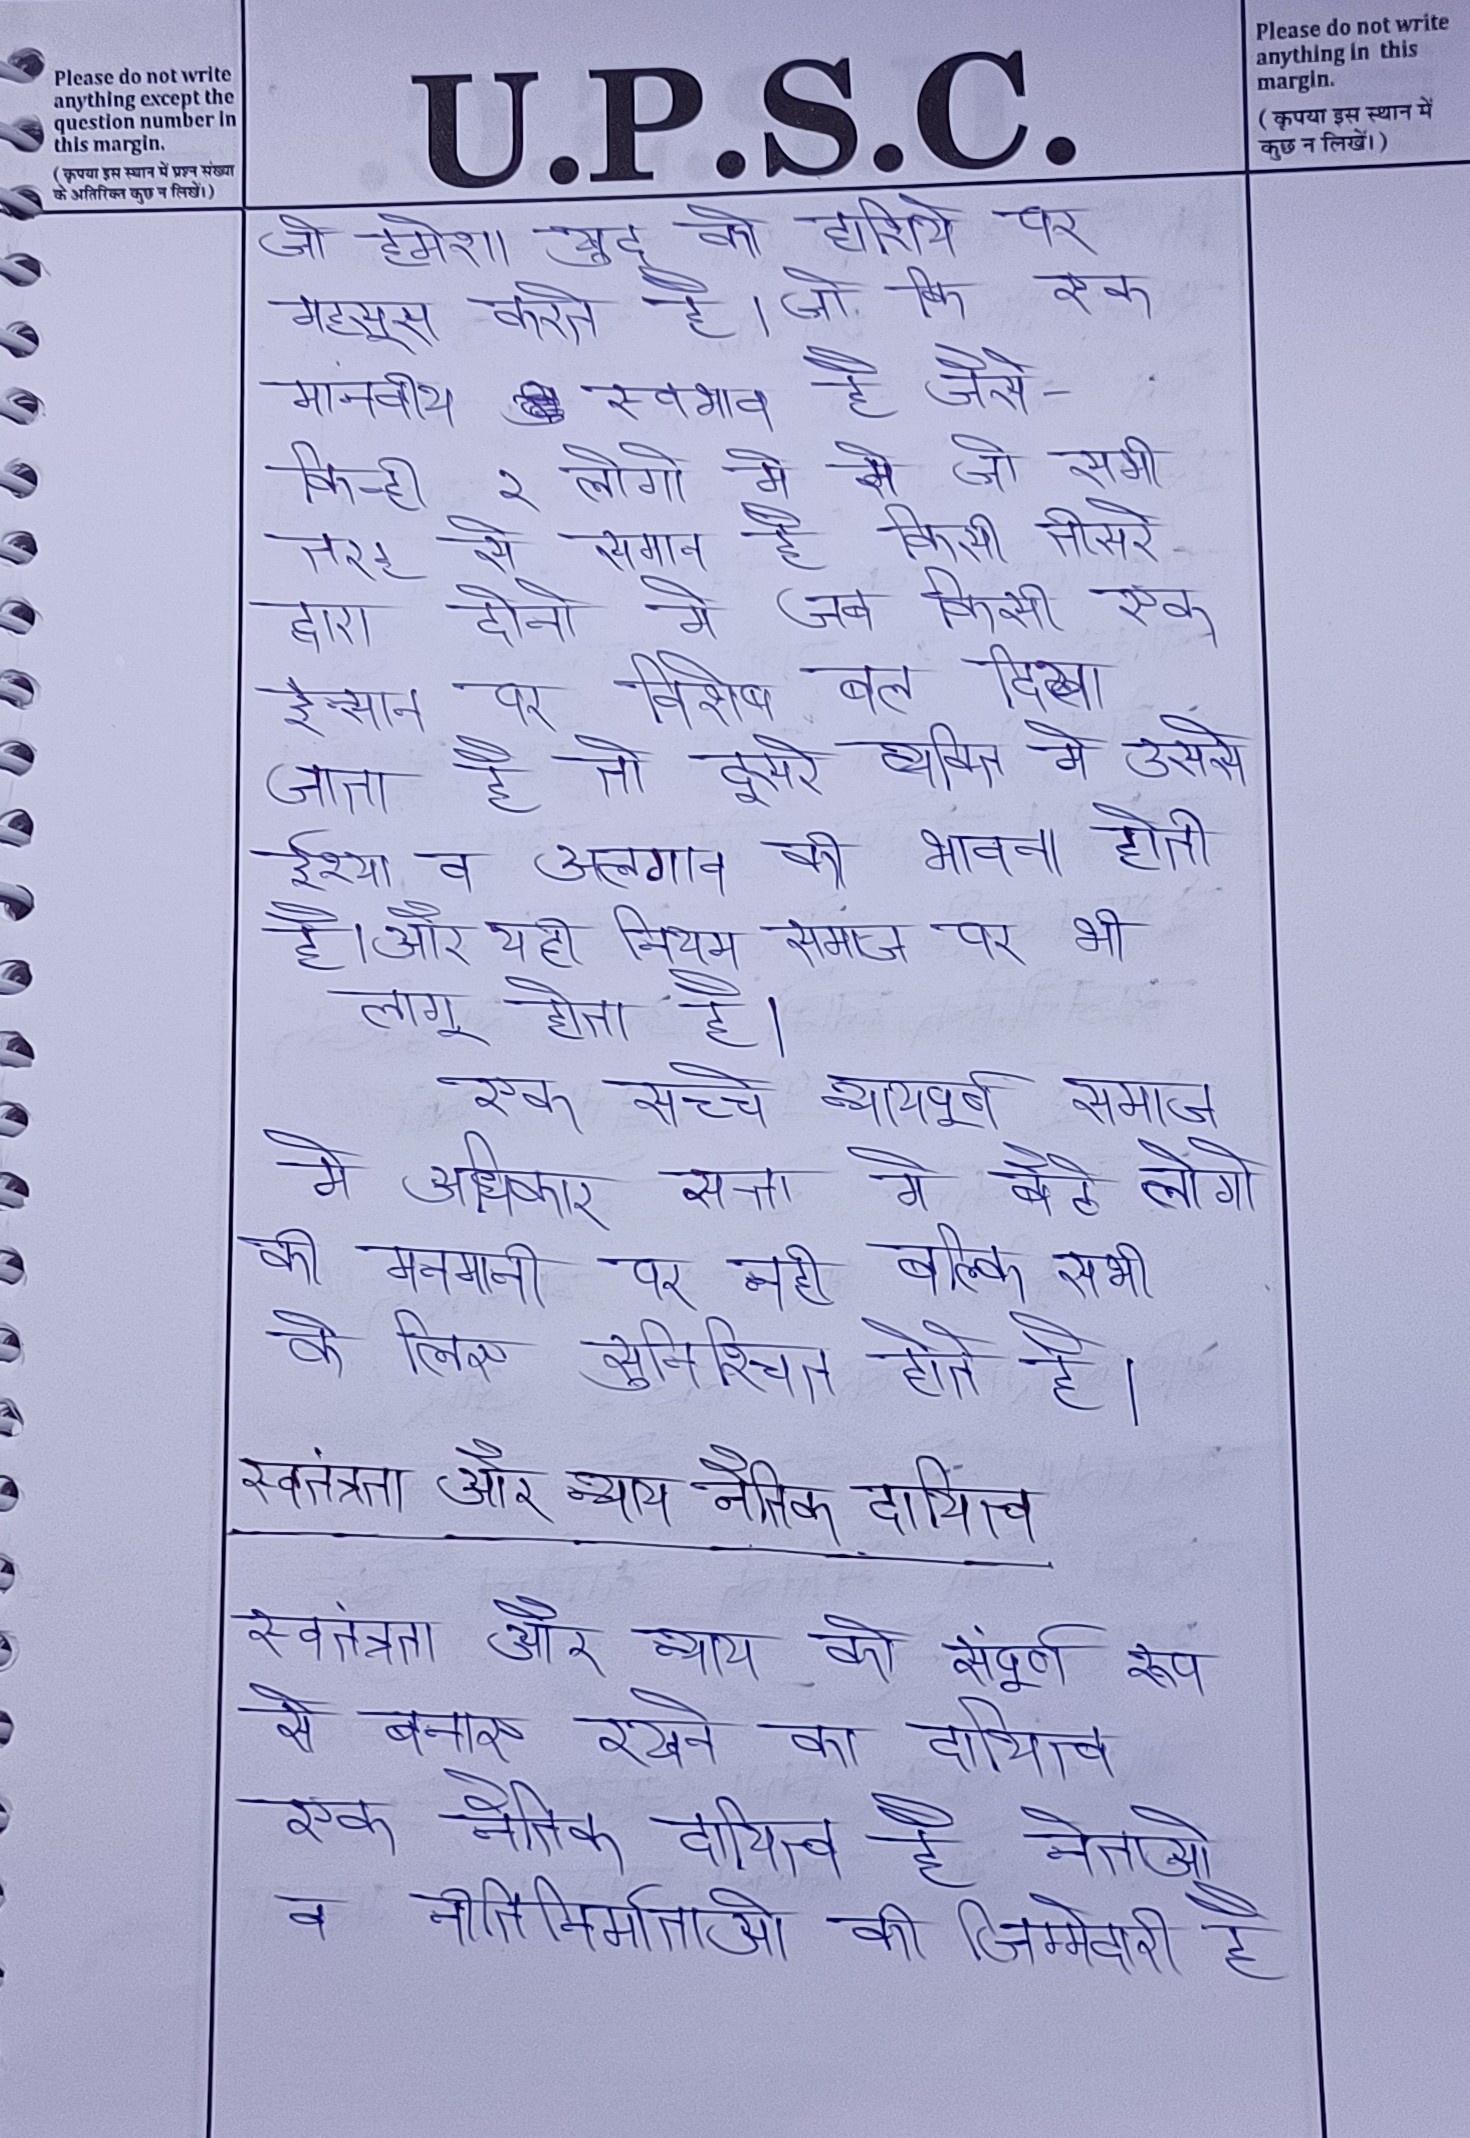 Please do not write
anything except the
question number in
this margin.
(कृपया इस स्थान में प्रश्न संख्या
के अतिरिक्त कुछ न लिखें।)
U.P.S.C.
Please do not write
anything in this
margin.
(कृपया इस स्थान में
कुछ न लिखें।)
जो हमेशा खुद को हाशिये पर
महसूस करते है। जो कि एक
मानवीय स्वभाव है जैसे-
किन्ही २ लोगो मे से जो सभी
तरह से समान है किसी तीसरे
द्वारा दोनो मे जब किसी एक
इंसान पर विशेष बल दिया
जाता है तो दूसरे व्यक्ति मे उससे
ईश्या व अलगाव की भावना होती
है। और यही नियम समाज पर भी
लागू होता है।
एक सच्चे न्यायपूर्ण समाज
मे अधिकार सत्ता मे बैठे लोगो
की मनमानी पर नही बल्कि सभी
के लिए सुनिश्चित होते है।
स्वतंत्रता और न्याय नैतिक दायित्व
स्वतंत्रता और न्याय को संपूर्ण रूप
से बनाए रखने का दायित्व
एक नैतिक दायित्व है नेताओ
व नीतिनिर्माताओ की जिम्मेदारी है